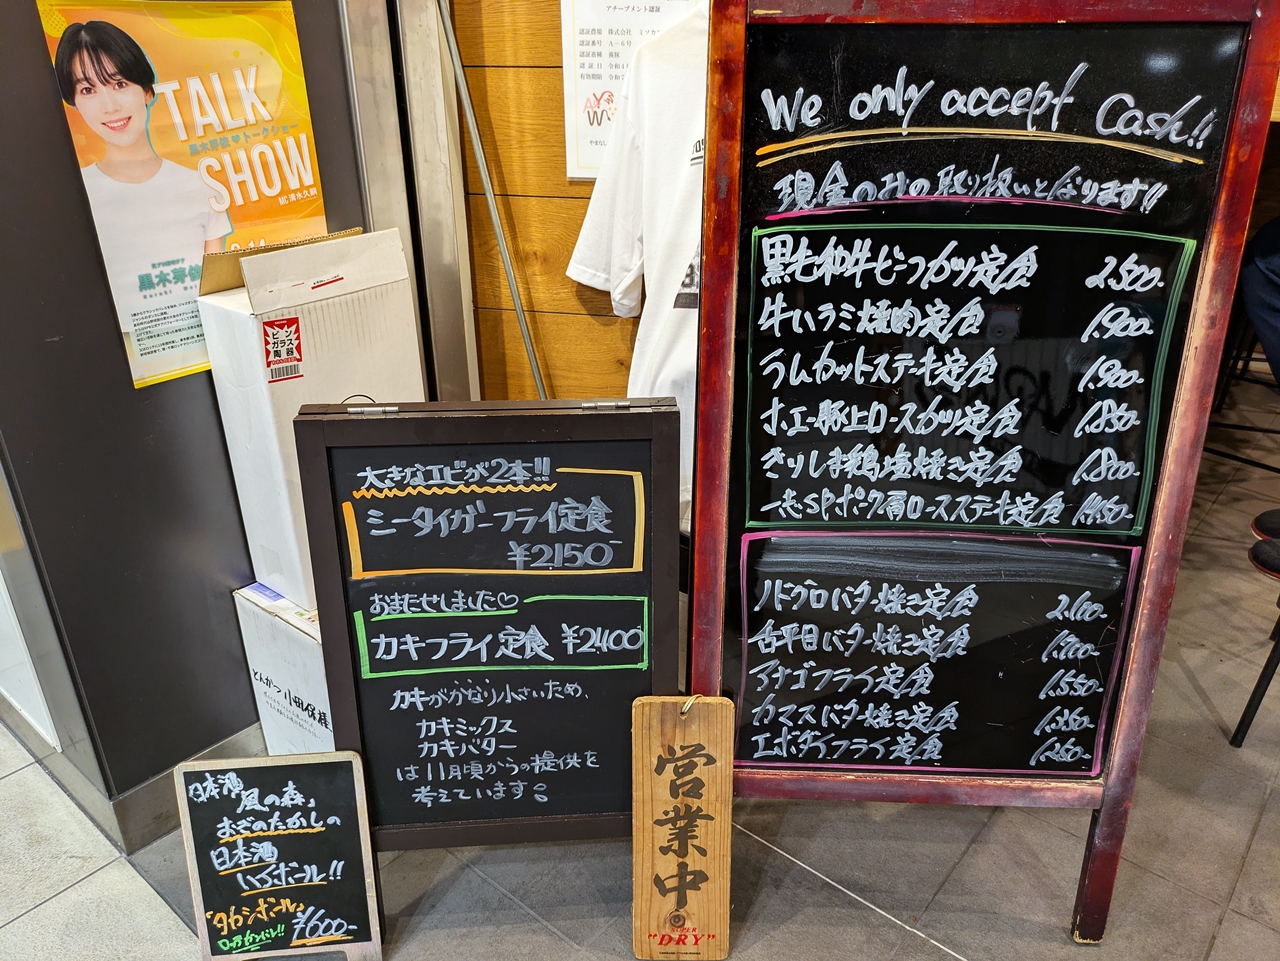 TALK
黒木芽依❤トークショー
SHOW
MC清水久嗣
黒木芽依
アチーブメント認証
認証農場 株式会社
認証番号 A-6号
有効期限
ビン
ガラス
陶器
とんかつ 小田保様
We only accept Cash!!
現金のみの取り扱いとなります!!
黒毛和牛ビーフカツ定食 2,500-
牛ハラミ焼肉定食 1,900-
ラムカットステーキ定食 1,900-
ホエー豚上ロースカツ定食 1,850-
きりしま鶏塩焼き定食 1,800-
一志SPポーク肩ロースステーキ定食 1,450-
ノドグロバター焼き定食 2,100-
舌平目バター焼き定食
アナゴフライ定食 1,550-
カマスバター焼き定食 1,350-
エボダイフライ定食 1,250-
大きなエビが2本!!
シータイガーフライ定食
¥2150-
おまたせしました♡
カキフライ定食 ¥2400
カキがかなり小さいため、
カキミックス
カキバター
は11月頃からの提供を
考えています。
日本酒
「風の森」
おぞのたかしの
日本酒
ハイボール!!
「タカシボール」
¥600-
営業中
SUPER
"DRY"